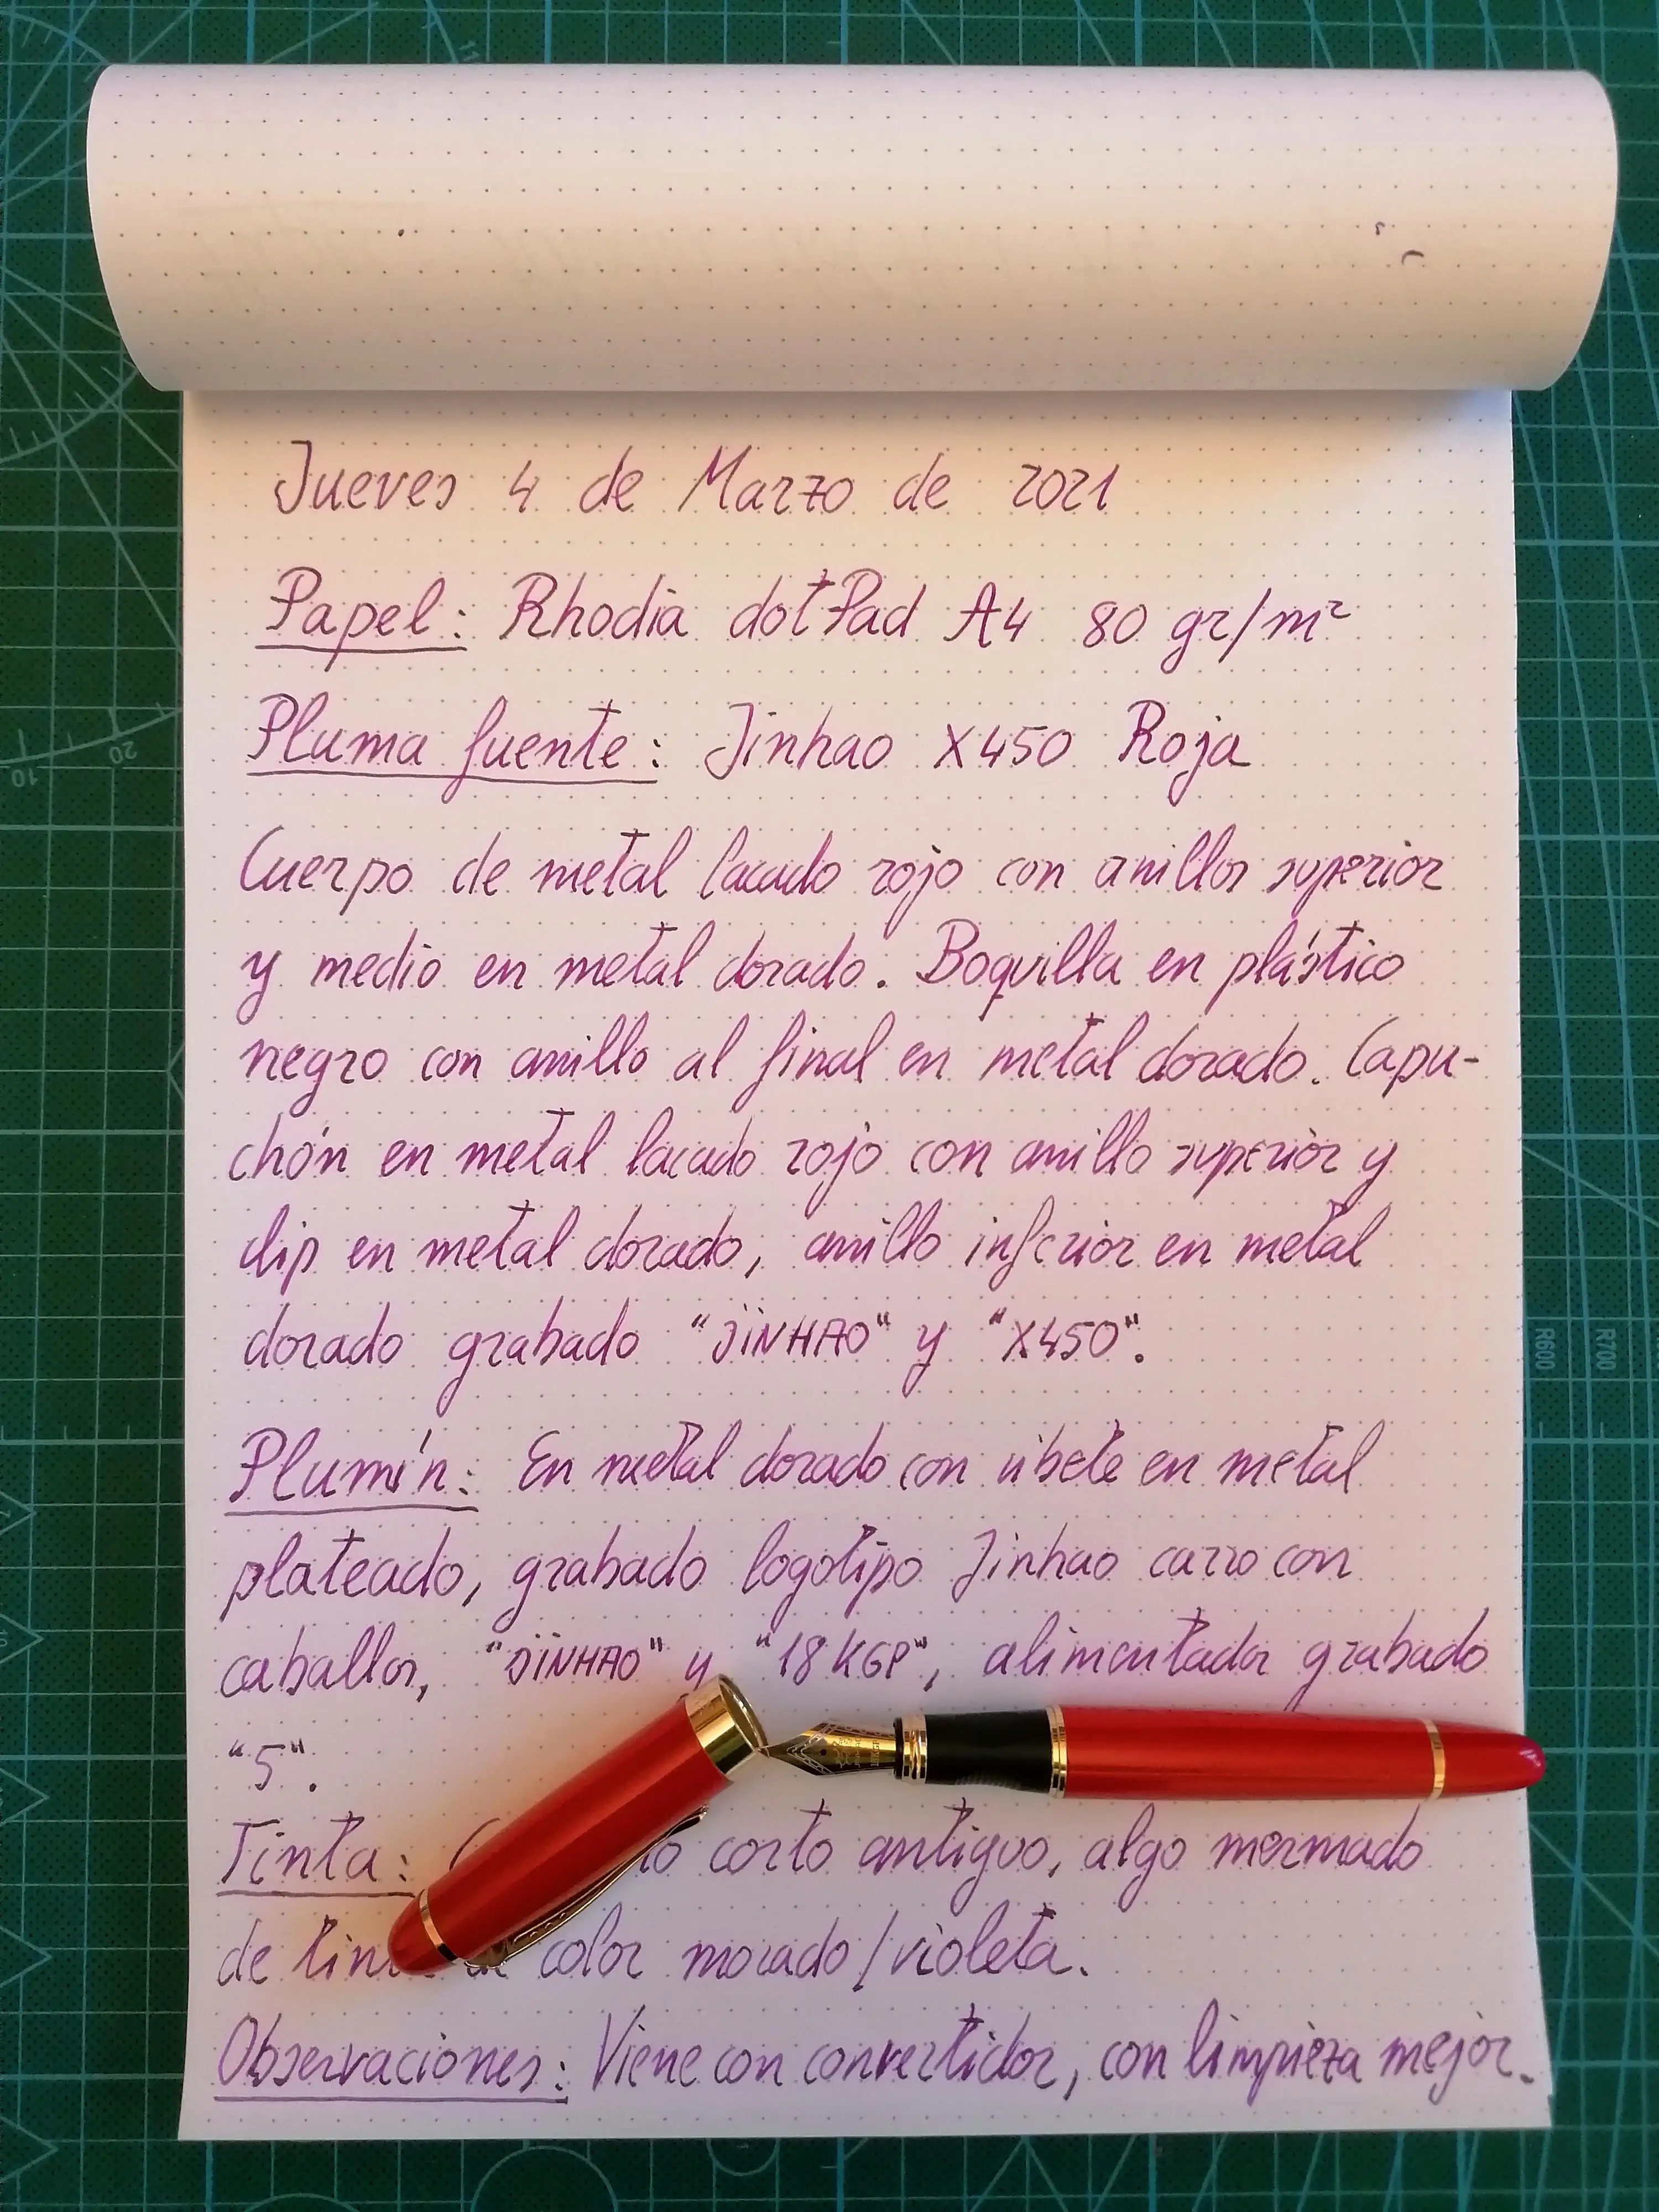 Jueves 4 de Marzo de 2021
Papel: Rhodia dotPad A4 80 gr/m²
Pluma fuente: Jinhao X450 Roja
Cuerpo de metal lacado rojo con anillos superior
y medio en metal dorado. Boquilla en plástico
negro con anillo al final en metal dorado. Capu-
chón en metal lacado rojo con anillo superior y
clip en metal dorado, anillo inferior en metal
dorado grabado "JINHAO" y "X450".
Plumín: En metal dorado con ribete en metal
plateado, grabado logotipo Jinhao carro con
caballos, "JINHAO" y "18KGP", alimentador grabado
"5".
Tinta: corto antiguo, algo mermado
de color morado/violeta.
Observaciones: Viene con convertidor, con limpieza mejor.
10
20
R600
R700